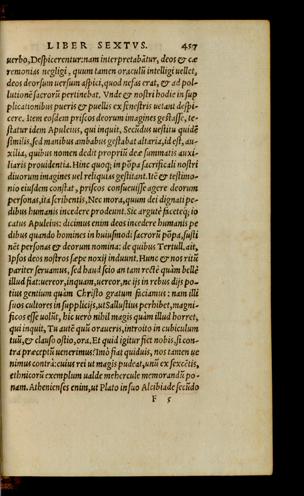 LIBER SEXTVS. 457
uerbo, Despicerentur: nam interpretabãtur, deos & cæ
remonias negligi, quum tamen oraculũ intelligi uellet,
deos deorsum uersum aspici, quod nefas erat, & ad pol-
lutionẽ sacrorũ pertinebat. Vnde & nostri hodie in sup
plicationibus pueris & puellis ex fenestris uetant despi-
cere. Item eosdem priscos deorum imagines gestasse, te-
statur idem Apuleius, qui inquit, Secũdus uestitu quidẽ
similis, sed manibus ambabus gestabat altaria, id est, au-
xilia, quibus nomen dedit propriũ deæ summatis auxi-
liaris prouidentia. Hinc quoq; in põpa sacrificali nostri
diuorum imagines uel reliquias gestitant. Itẽ & testimo-
nio eiusdem constat, priscos consueuisse agere deorum
personas, ita scribentis, Nec mora, quum dei dignati pe-
dibus humanis incedere prodeunt. Sic argutè faceteq; io
catus Apuleius: dicimus enim deos incedere humanis pe
dibus quando homines in huiusmodi sacrorũ põpa, susti
nẽt personas & deorum nomina: de quibus Tertull. ait,
Ipsos deos nostros sæpe noxij induunt. Hunc & nos ritũ
pariter seruamus, sed haud scio an tam rectè quàm bellè
illud fiat: uereor, inquam, uereor, ne ijs in rebus dijs po-
tius gentium quàm Christo gratum faciamus: nam illi
suos cultores in supplicijs, ut Sallustius perhibet, magni-
ficos esse uolũt, hic uerò nihil magis quàm illud horret,
qui inquit, Tu autẽ quũ oraueris, introito in cubiculum
tuũ, & clauso ostio, ora. Et quid igitur fiet nobis, si con-
tra præceptũ uenerimus? Imò fiat quiduis, nos tamen ue
nimus contrà: cuius rei ut magis pudeat, unũ ex sexcẽtis,
ethnicorũ exemplum ualde mehercule memorandũ po-
nam. Athenienses enim, ut Plato in suo Alcibiade secũdo
F 5